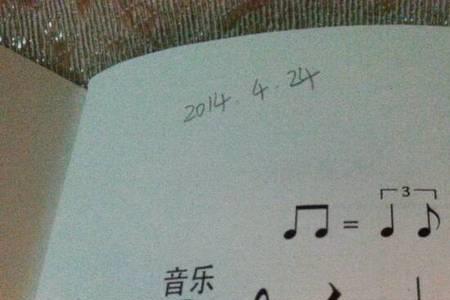 2014.4.24
3
=
音乐